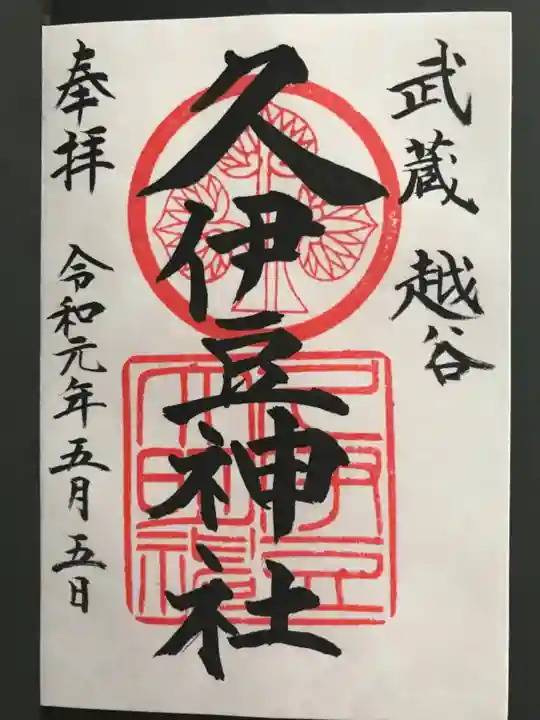 武蔵 越谷
久伊豆神社
奉拝 令和元年五月五日